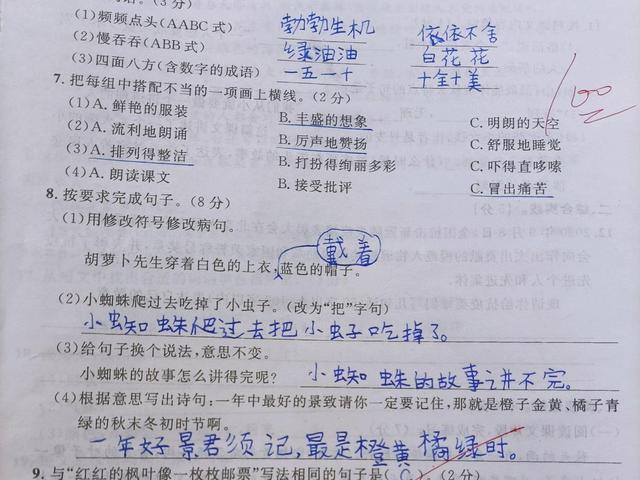 (1)频频点头(AABC 式) 勃勃生机 依依不舍
(2)慢吞吞(ABB 式) 绿油油 白花花
(3)四面八方(含数字的成语) 一五一十 十全十美
7. 把每组中搭配不当的一项画上横线。(2 分)
(1)A. 鲜艳的服装 B. 丰盛的想象 C. 明朗的天空
(2)A. 流利地朗诵 B. 厉声地赞扬 C. 舒服地睡觉
(3)A. 排列得整洁 B. 打扮得绚丽多彩 C. 吓得直哆嗦
(4)A. 朗读课文 B. 接受批评 C. 冒出痛苦
8. 按要求完成句子。(8 分)
(1)用修改符号修改病句。
戴着
胡萝卜先生穿着白色的上衣,蓝色的帽子。
(2)小蜘蛛爬过去吃掉了小虫子。(改为“把”字句)
小蜘蛛爬过去把小虫子吃掉了。
(3)给句子换个说法,意思不变。
小蜘蛛的故事怎么讲得完呢? 小蜘蛛的故事讲不完。
(4)根据意思写出诗句:一年中最好的景致请你一定要记住,那就是橙子金黄、橘子青
绿的秋末冬初时节啊。
一年好景君须记,最是橙黄橘绿时。
9. 与“红红的枫叶像一枚枚邮票”写法相同的句子是( C )。(2 分)
100